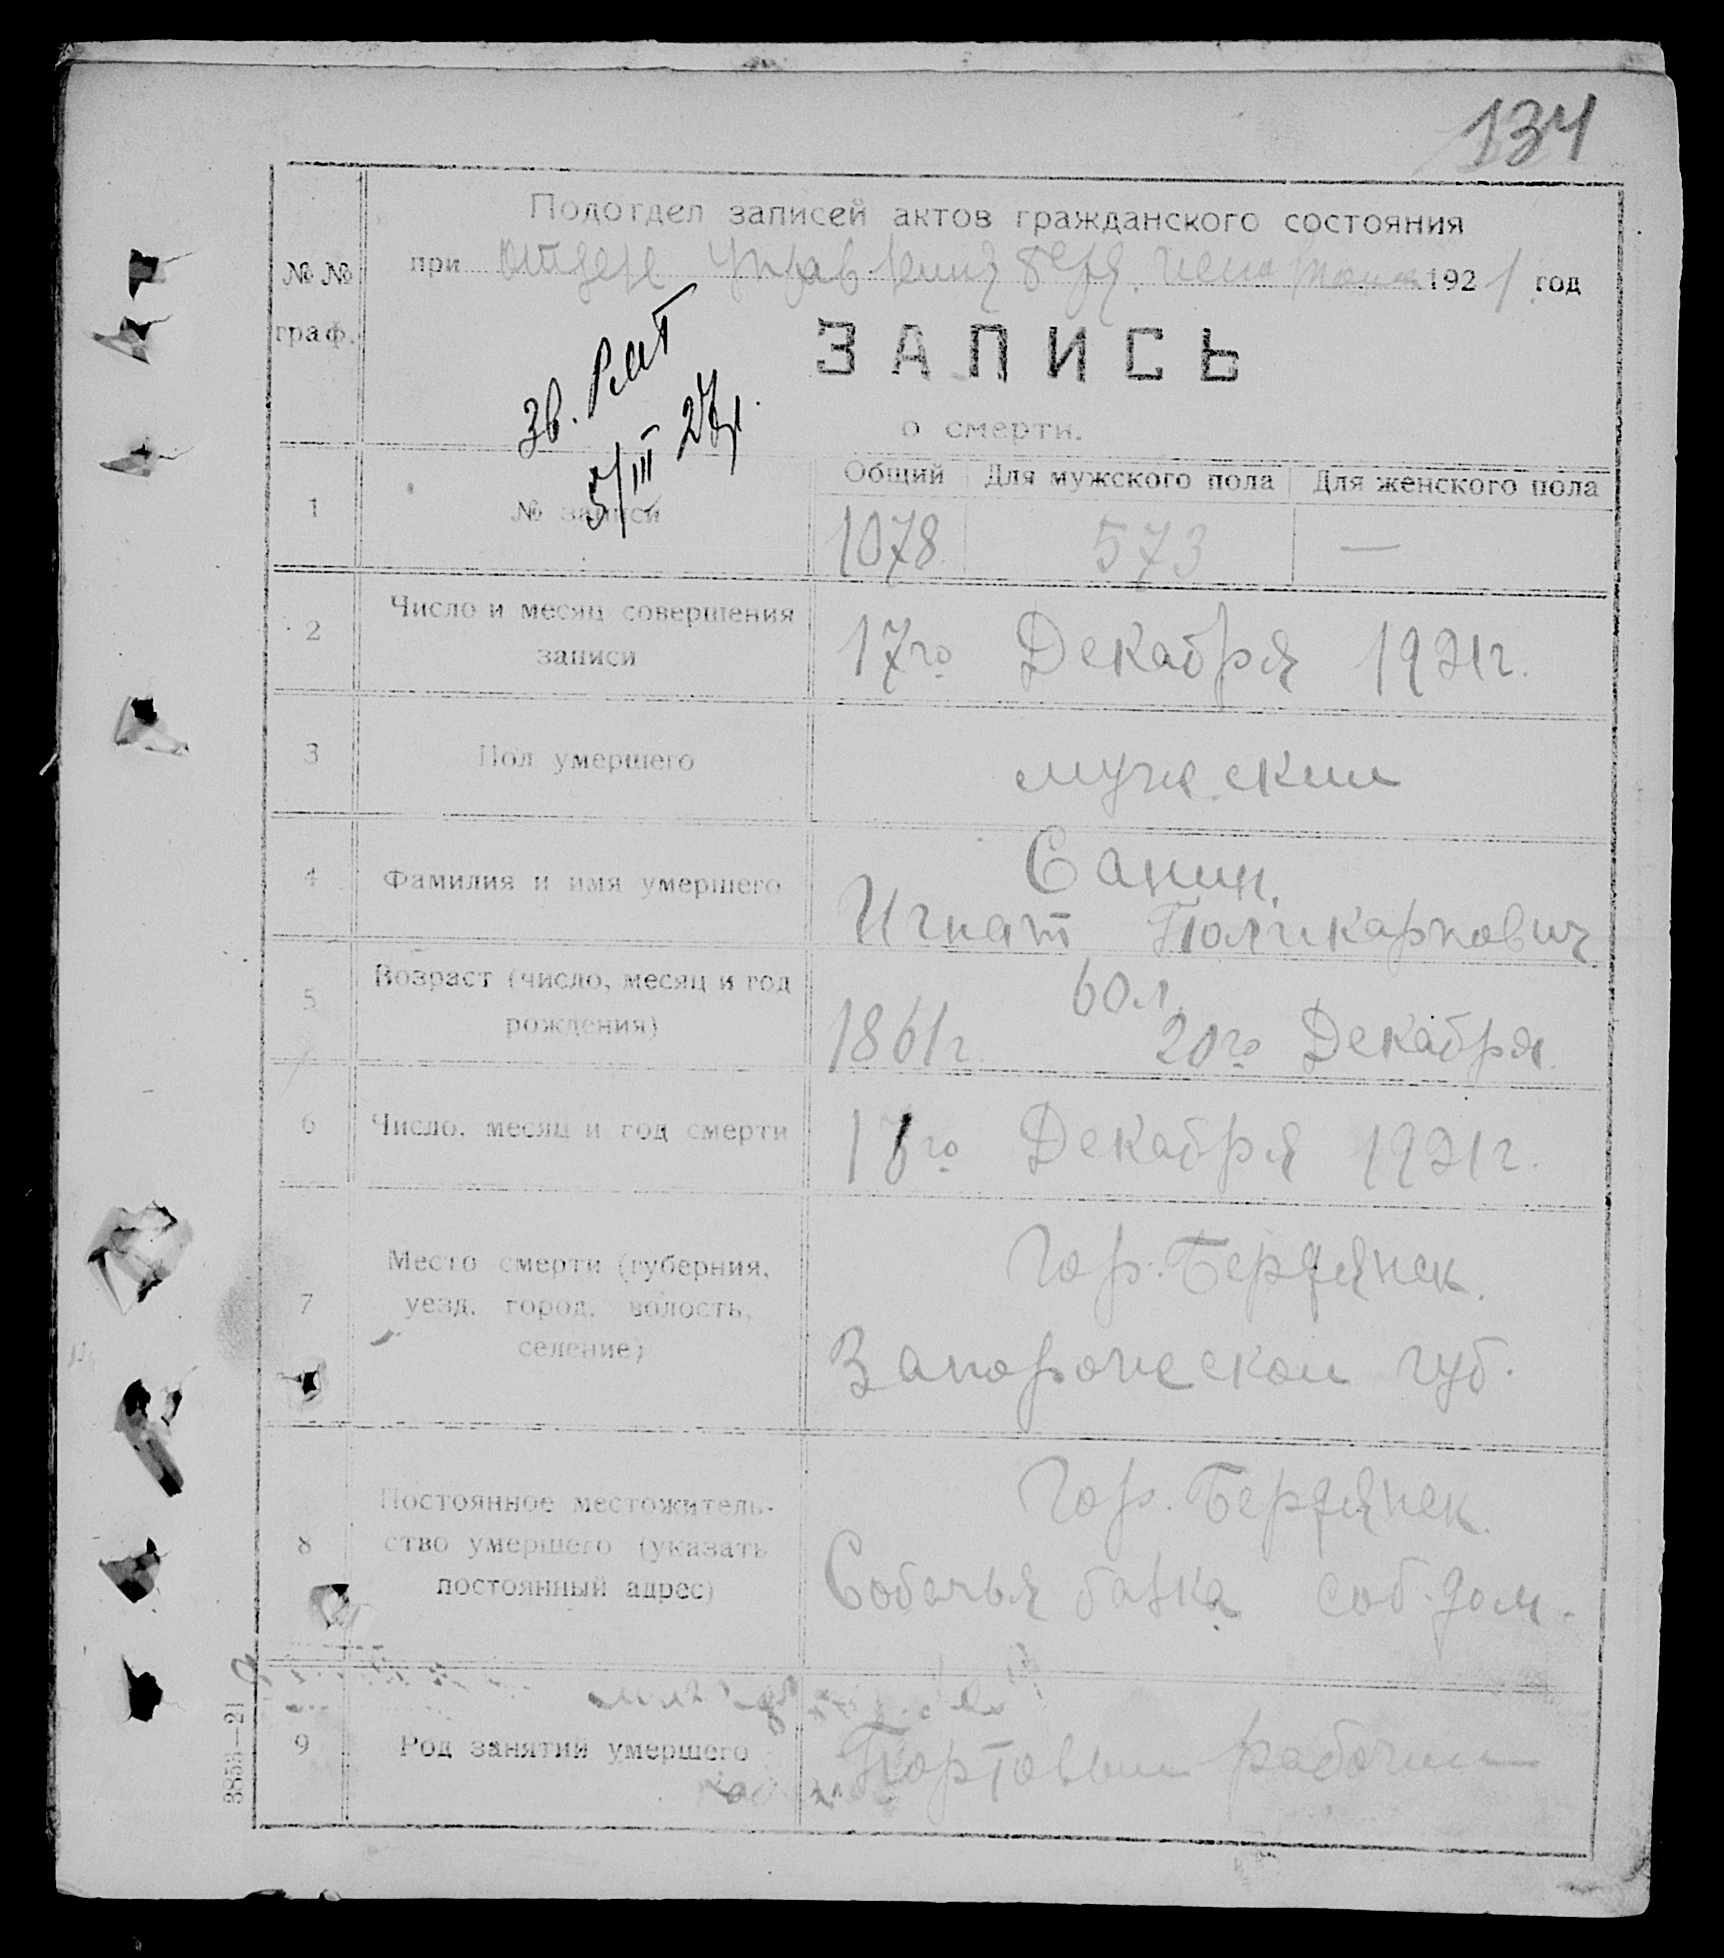 134
Подотдел записей актов гражданского состояния
при отделе Управления Берд. 1921 год
№№
граф.
ЗАПИСЬ
о смерти.
5/III 27г.
Общий Для мужского пола Для женского пола
1 № записи 1078 573 —
2 Число и месяц совершения
записи
17го Декабря 1921г.
3 Пол умершего мужской
4 Фамилия и имя умершего
Санин.
Игнат Поликарпович
5 Возраст (число, месяц и год
рождения)
60 л.
1861г. 20го Декабря.
6 Число, месяц и год смерти Декабря 1921г.
7 Место смерти (губерния,
уезд, город, волость,
селение)
Гор. Бердянск.
Запорожской губ.
8 Постоянное местожитель-
ство умершего (указать
постоянный адрес)
Гор. Бердянск.
Собачья балка соб. дом.
9 Род занятий умершего Портовый рабочий
3855—21